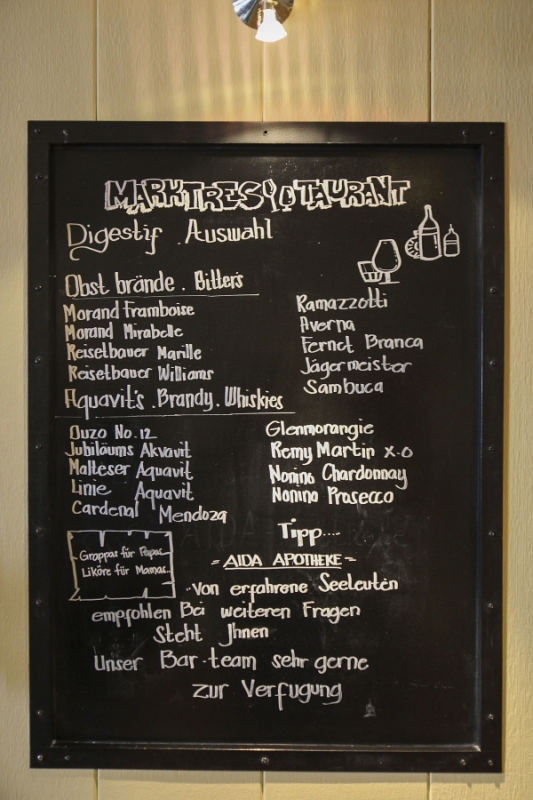 MARKTRESTAURANT
Digestif Auswahl
Obst brände . Bitters
Morand Framboise
Morand Mirabelle
Reisetbauer Marille
Reisetbauer Williams
Ramazzotti
Averna
Fernet Branca
Jägermeister
Sambuca
Aquavit's . Brandy . Whiskies
Ouzo No. 12
Jubiläums Akvavit
Malteser Aquavit
Linie Aquavit
Cardenal Mendoza
Glenmorangie
Remy Martin X.O
Nonino Chardonnay
Nonino Prosecco
Grappas für Papas...
Liköre für Mamas...
Tipp....
- AIDA APOTHEKE -
Von erfahrene Seeleuten
empfohlen Bei weiteren Fragen
Steht Jhnen
Unser Bar-team sehr gerne
zur Verfugung